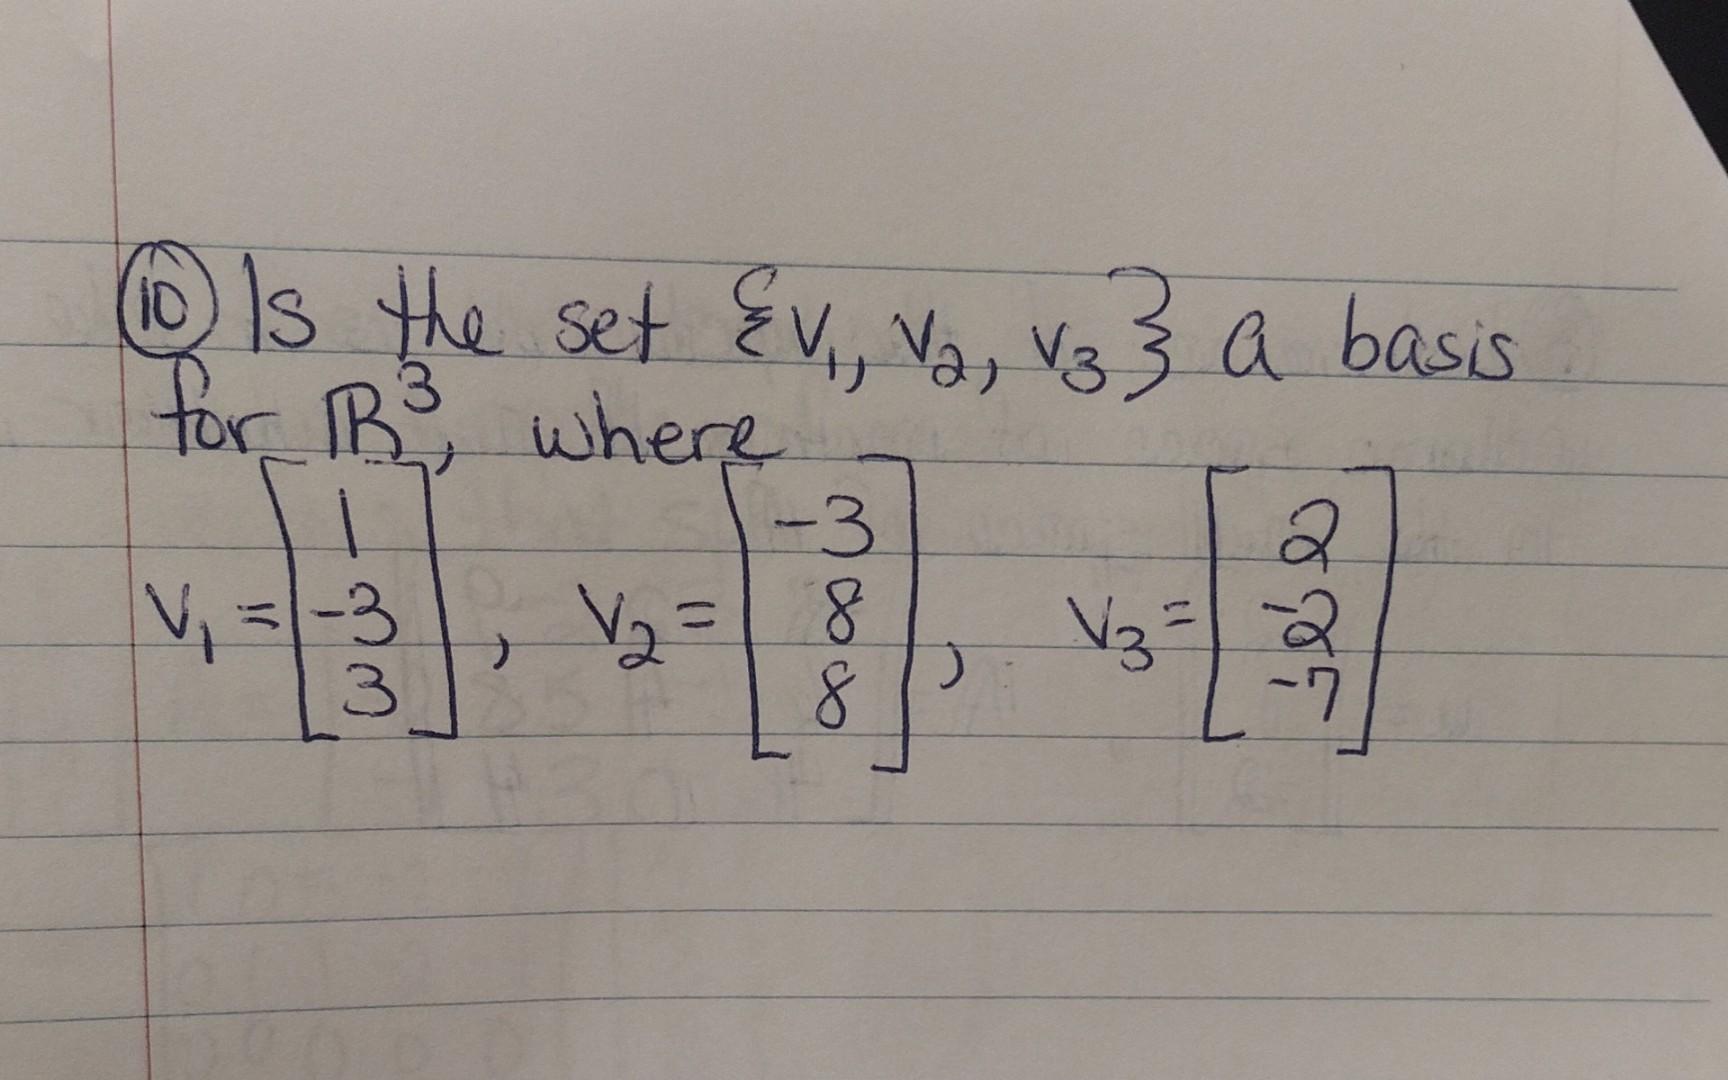 10 Is the set {v₁, v₂, v₃} a basis
for ℝ³, where
v₁ = [1 -3 3], v₂ = [-3 8 8], v₃ = [2 -2 -7]